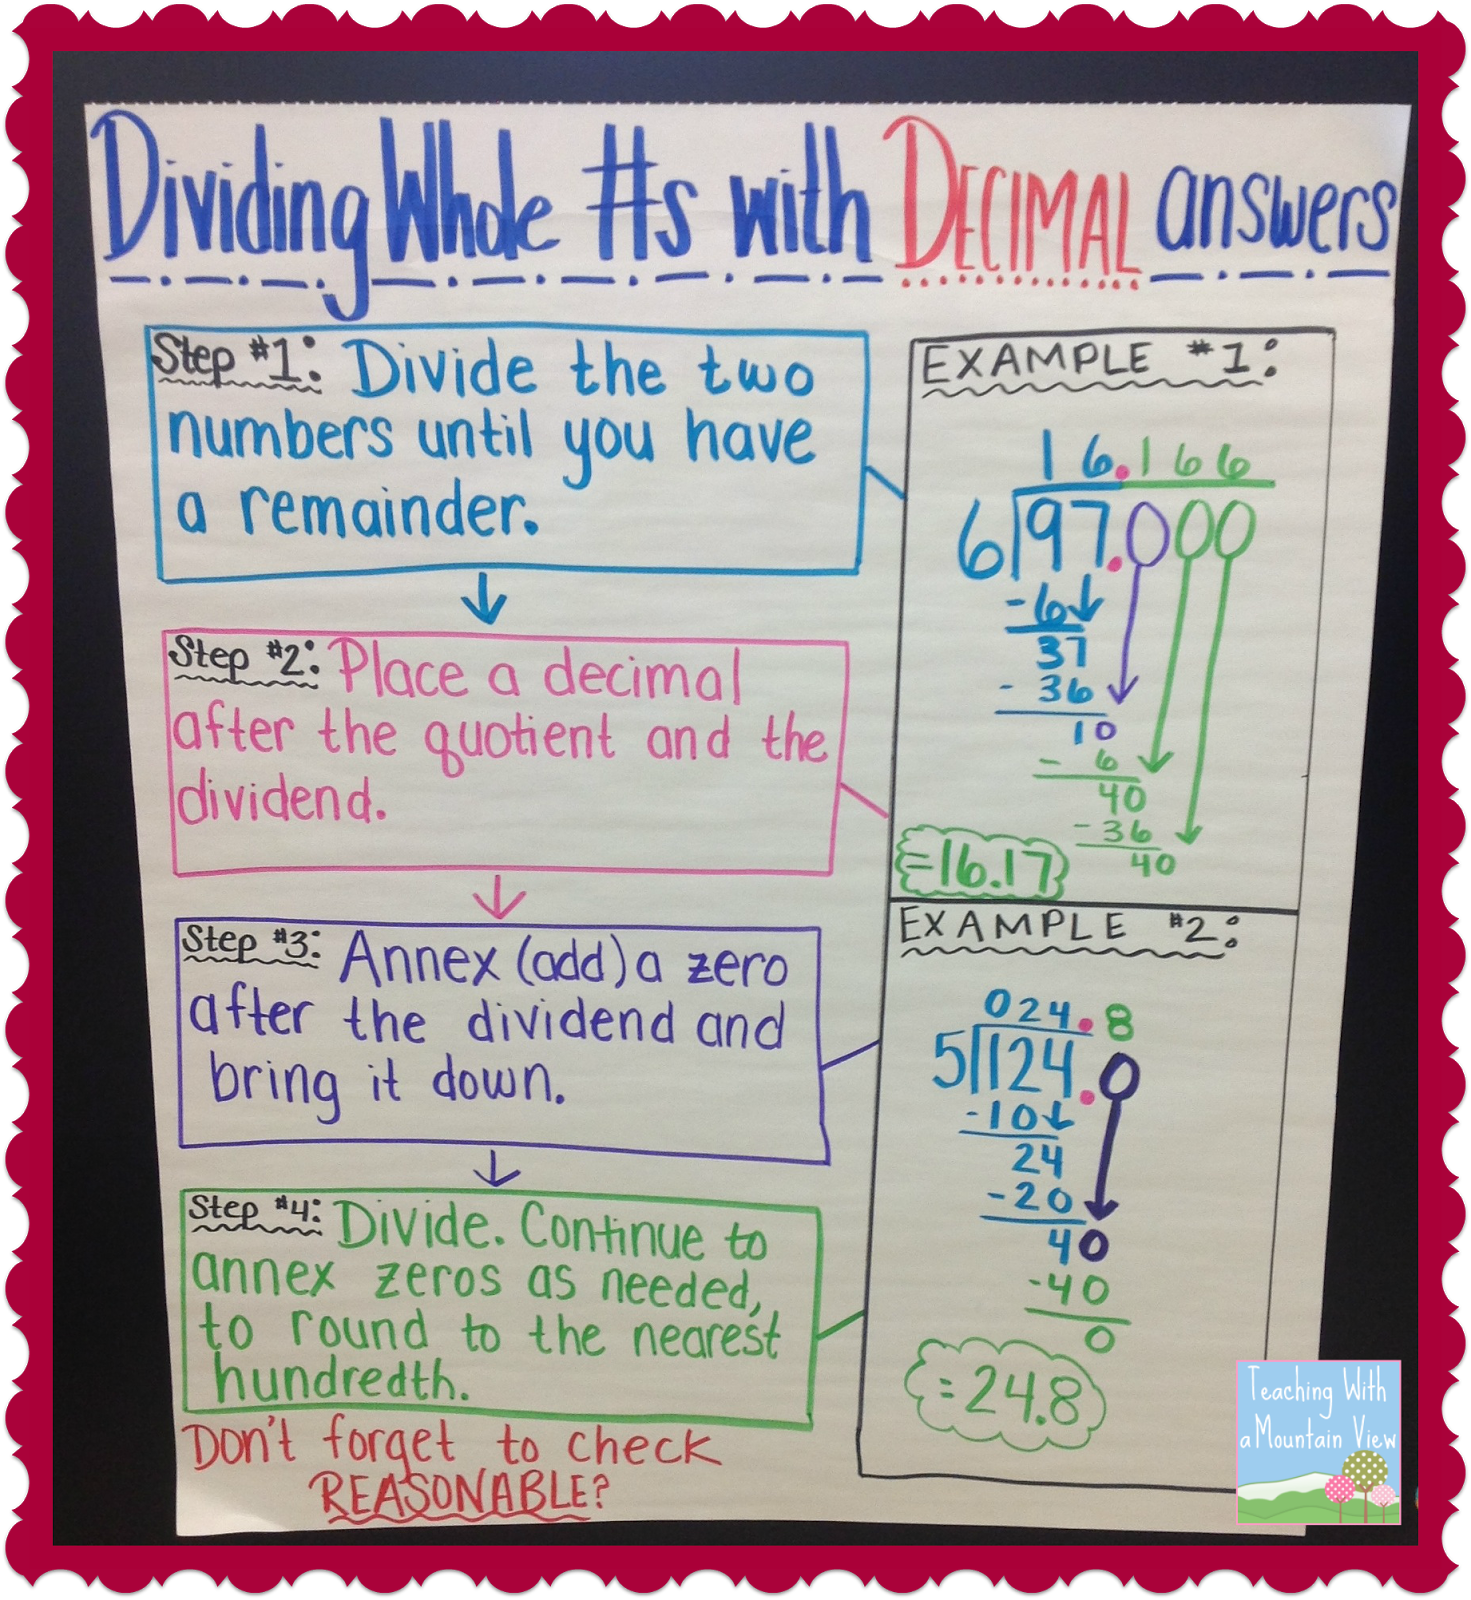 Dividing Whole #s with DECIMAL answers
Step #1: Divide the two
numbers until you have
a remainder.
Step #2: Place a decimal
after the quotient and the
dividend.
Step #3: Annex (add) a zero
after the dividend and
bring it down.
Step #4: Divide. Continue to
annex zeros as needed,
to round to the nearest
hundredth.
Don't forget to check
REASONABLE?
EXAMPLE #1:
16.166
6)97.000
-6
37
-36
10
- 6
40
-36
40
=16.17
EXAMPLE #2:
024.8
5)124.0
-10
24
-20
40
-40
0
=24.8
Teaching With
a Mountain View